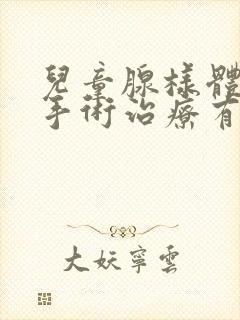 兒童腺樣體
手術治療有
大妖寧雲